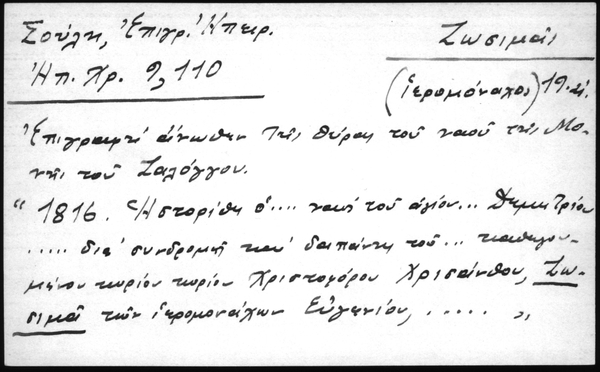 Σούλη, Ἐπιγρ. Ἠπειρ.
Ζωσιμᾶς
Ἠπ. Χρ. 9, 110
(ἱερομόναχος) 19 αἰ.
Ἐπιγραφή ἄνωθεν τῆς θύρας τοῦ ναοῦ τῆς Μο-
νῆς τοῦ Ζαλόγγου.
"1816. Ἡστορίθη ὁ .... ναός τοῦ ἁγίου ... Δημητρίου
..... διά συνδρομῆς καί δαπάνης τοῦ ... καθηγου-
μένου κυρίου κυρίου Χριστοφόρου Χρισάνθου, Ζω-
σιμᾶ τῶν ἱερομονάχων Εὐγενίου, ..... "